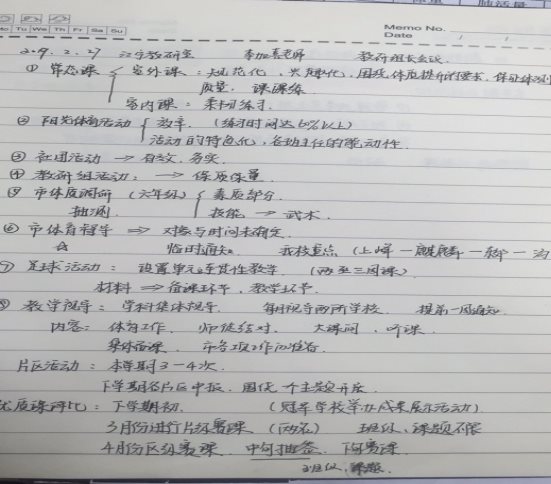 肺活量
Mo Tu We Th Fr Sa Su
Memo No.
Date / /
2019.2.27 江宁教研室 老师 教研组长会议
① 常态课 室外课:规范化,兴趣化,围绕体质提升的要求,保证体
质量,课课练
室内课:素材练习
② 阳光体育活动 效率(练习时间达60%以上)
活动的特色化,各班主任的能动性
③ 社团活动 → 有效,务实
④ 教研组活动: → 保质保量
⑤ 市体质调研(六年级) 素质部分
抽测 技能 → 武术
⑥ 市体育督导 ⇒ 对象与时间未确定
☆ 临时通知 我校重点(上峰—麒麟—
⑦ 足球活动: 设置单元连贯性教学(两至三周课)
材料 ⇒ 备课环节,教学环节
⑧ 教学视导: 学科集体视导 每月视导两所学校 提前一周通知
内容: 体育工作,师徒结对,大课间,听课
集体备课 市各项工作的准备
片区活动: 本学期3—4次
下学期各片区申报,围绕一个主题开展
优质课评比: 下学期初 (冠军学校举办成果展示活动)
3月份进行片级赛课(两名) 班级,课题不限
4月份区级赛课 中旬抽签 下旬赛课
班级,课题